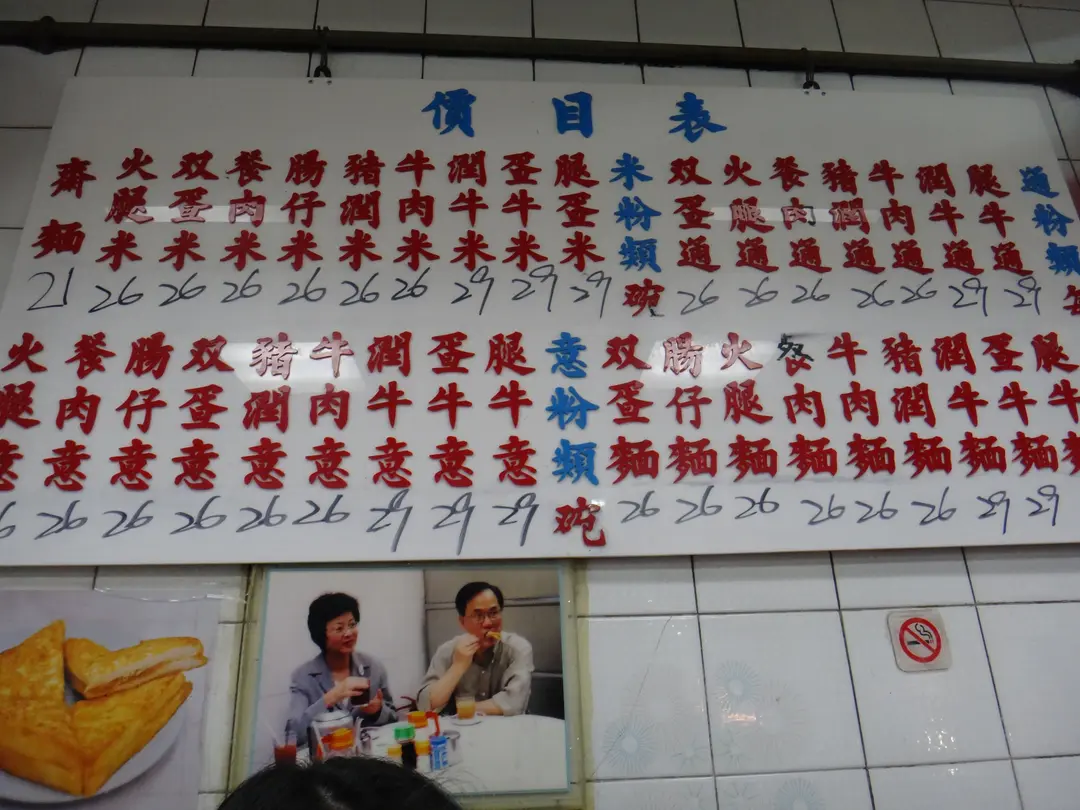 價目表
通粉類
腿牛通 29
潤牛通 29
牛肉通 26
豬潤通 26
餐肉通 26
火腿通 26
双蛋通 26
米粉類碗
腿蛋米 29
蛋牛米 29
潤牛米 29
牛肉米 26
豬潤米 26
腸仔米 26
餐肉米 26
双蛋米 26
火腿米 26
齋麵 21
腿牛麵
蛋牛麵 29
潤牛麵 29
豬潤麵 26
牛肉麵 26
餐肉麵 26
火腿麵 26
腸仔麵 26
双蛋麵 26
意粉類碗
腿牛意 29
蛋牛意 29
潤牛意 29
牛肉意 26
豬潤意 26
双蛋意 26
腸仔意 26
餐肉意 26
火腿意